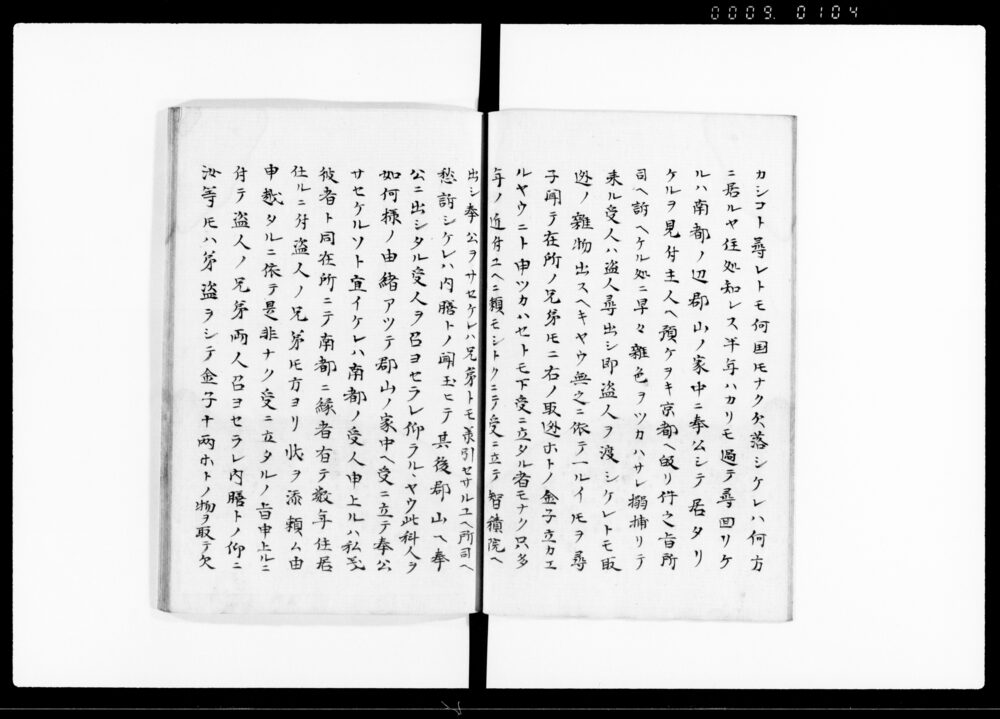 0009. 0104
カシコト尋レトモ何国ヘモナク欠落シケレハ何方
ニ居ルヤ住処知レス半年ハカリモ過テ尋回リケ
ルハ南都ノ辺郡山ノ家中ニ奉公シテ居タリ
ケルヲ見付主人ヘ預ケヲキ京都ヘ皈リ件之旨所
司ヘ訴ヘケル処ニ早々雑色ヲツカハサレ搦捕リテ
来ル受人ハ盗人尋出シ即盗人ヲ渡シケレトモ取
迯ノ雑物出スヘキヤウ無之ニ依テ一ルイ𪜈ヲ尋
子聞テ在所ノ兄弟𪜈ニ右ノ取迯ホトノ金子立カエ
ルヤウニト申ツカハセトモ下受ニ立タル者モナク只多
年ノ近付ユヘニ頼モシトクニテ受ニ立テ智積院ヘ
出シ奉公ヲサセケレハ兄弟トモ承引セサルユヘ所司ヘ
愁訴シケレハ内膳トノ聞玉ヒテ其後郡山ヘ奉
公ニ出シタル受人ヲ召ヨセラレ仰ラルヽヤウ此科人ヲ
如何様ノ由緒アツテ郡山ノ家中ヘ受ニ立テ奉公
サセケルソト宣イケレハ南都ノ受人申上ルハ私
彼者ト同在所ニテ南都ニ縁者有テ数年住居
仕ルニ付盗人ノ兄弟𪜈方ヨリ状ヲ添頼ム由
申越タルニ依テ是非ナク受ニ立タルノ旨申上ルニ
付テ盗人ノ兄弟両人召ヨセラレ内膳トノ仰ニ
汝等𪜈ハ弟盗ヲシテ金子十両ホトノ物ヲ取テ欠